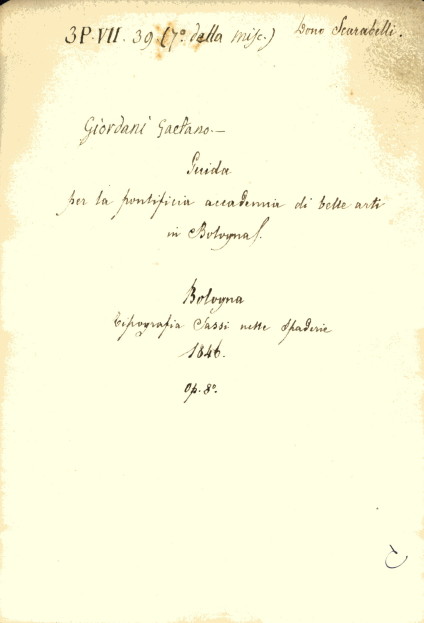 3P. VII. 39 (7º della misc.) Dono Scarabelli.
Giordani Gaetano.—
Guida
per la pontificia accademia di belle arti
in Bologna.
Bologna
tipografia Sassi nelle Spaderie
1846.
Op. 8º.